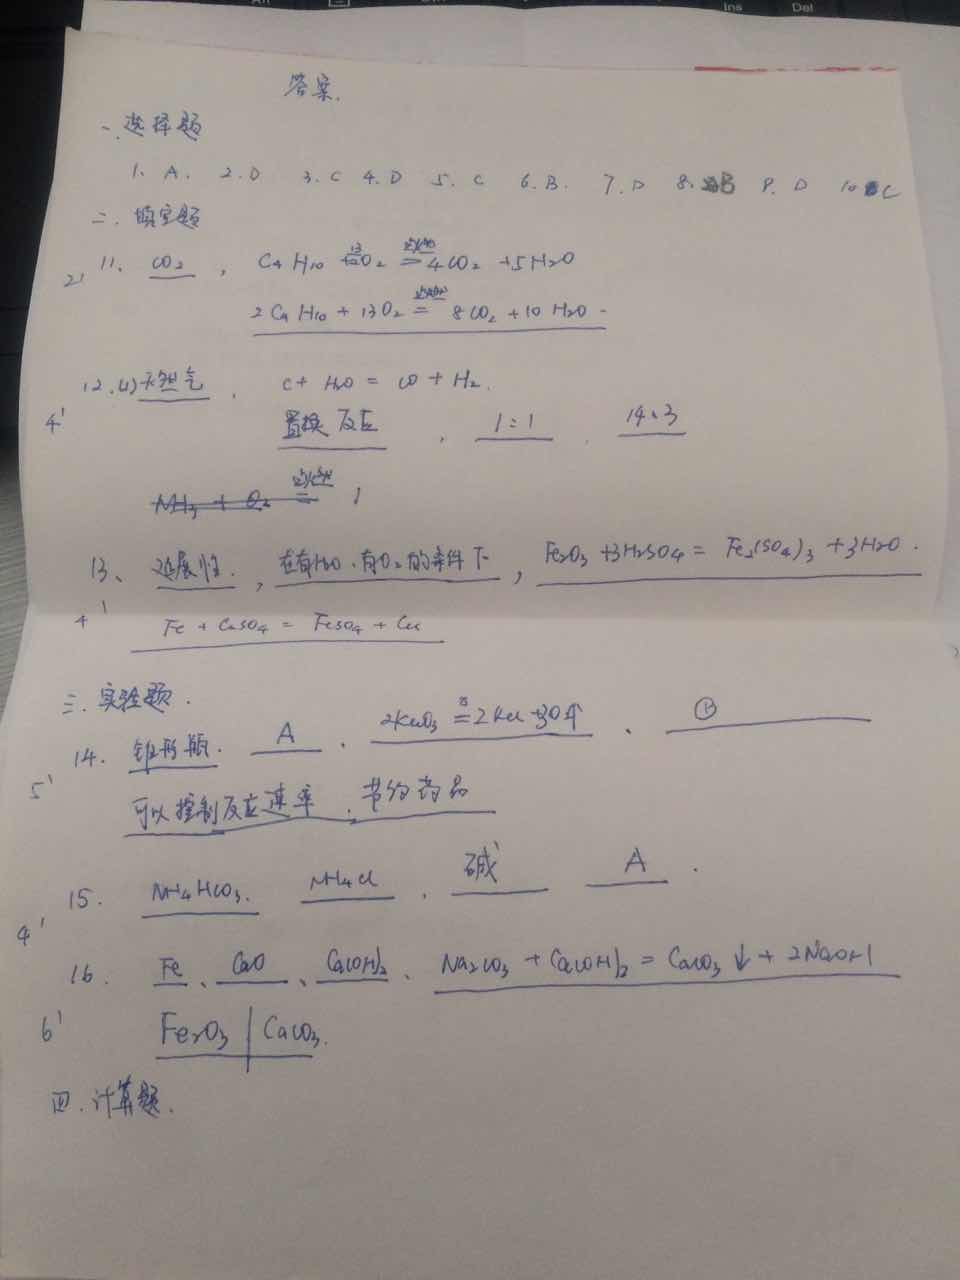 Ins Del
答案.
一、选择题
1. A. 2. D 3. C 4. D 5. C 6. B. 7. D 8. B 9. D 10. C
二. 填空题
2' 11. CO2 , C4H10 + 13/2 O2 点燃= 4CO2 + 5H2O
2C4H10 + 13O2 点燃= 8CO2 + 10H2O.
12. (1) 天然气. C + H2O = CO + H2.
4' 置换反应 , 1:1 . 14:3
NH3 + O2 点燃=
13、延展性. , 在有H2O、有O2的条件下 , Fe2O3 + 3H2SO4 = Fe2(SO4)3 + 3H2O.
4' Fe + CuSO4 = FeSO4 + Cu
三. 实验题.
14. 锥形瓶. A . 2KClO3 = 2KCl + 3O2↑ . ⑪
5' 可以控制反应速率 . 节约药品
15. NH4HCO3. NH4Cl . 碱 A .
4'
16. Fe 、 CaO 、 Ca(OH)2 、 Na2CO3 + Ca(OH)2 = CaCO3↓ + 2NaOH
6' Fe2O3 | CaCO3.
四. 计算题.